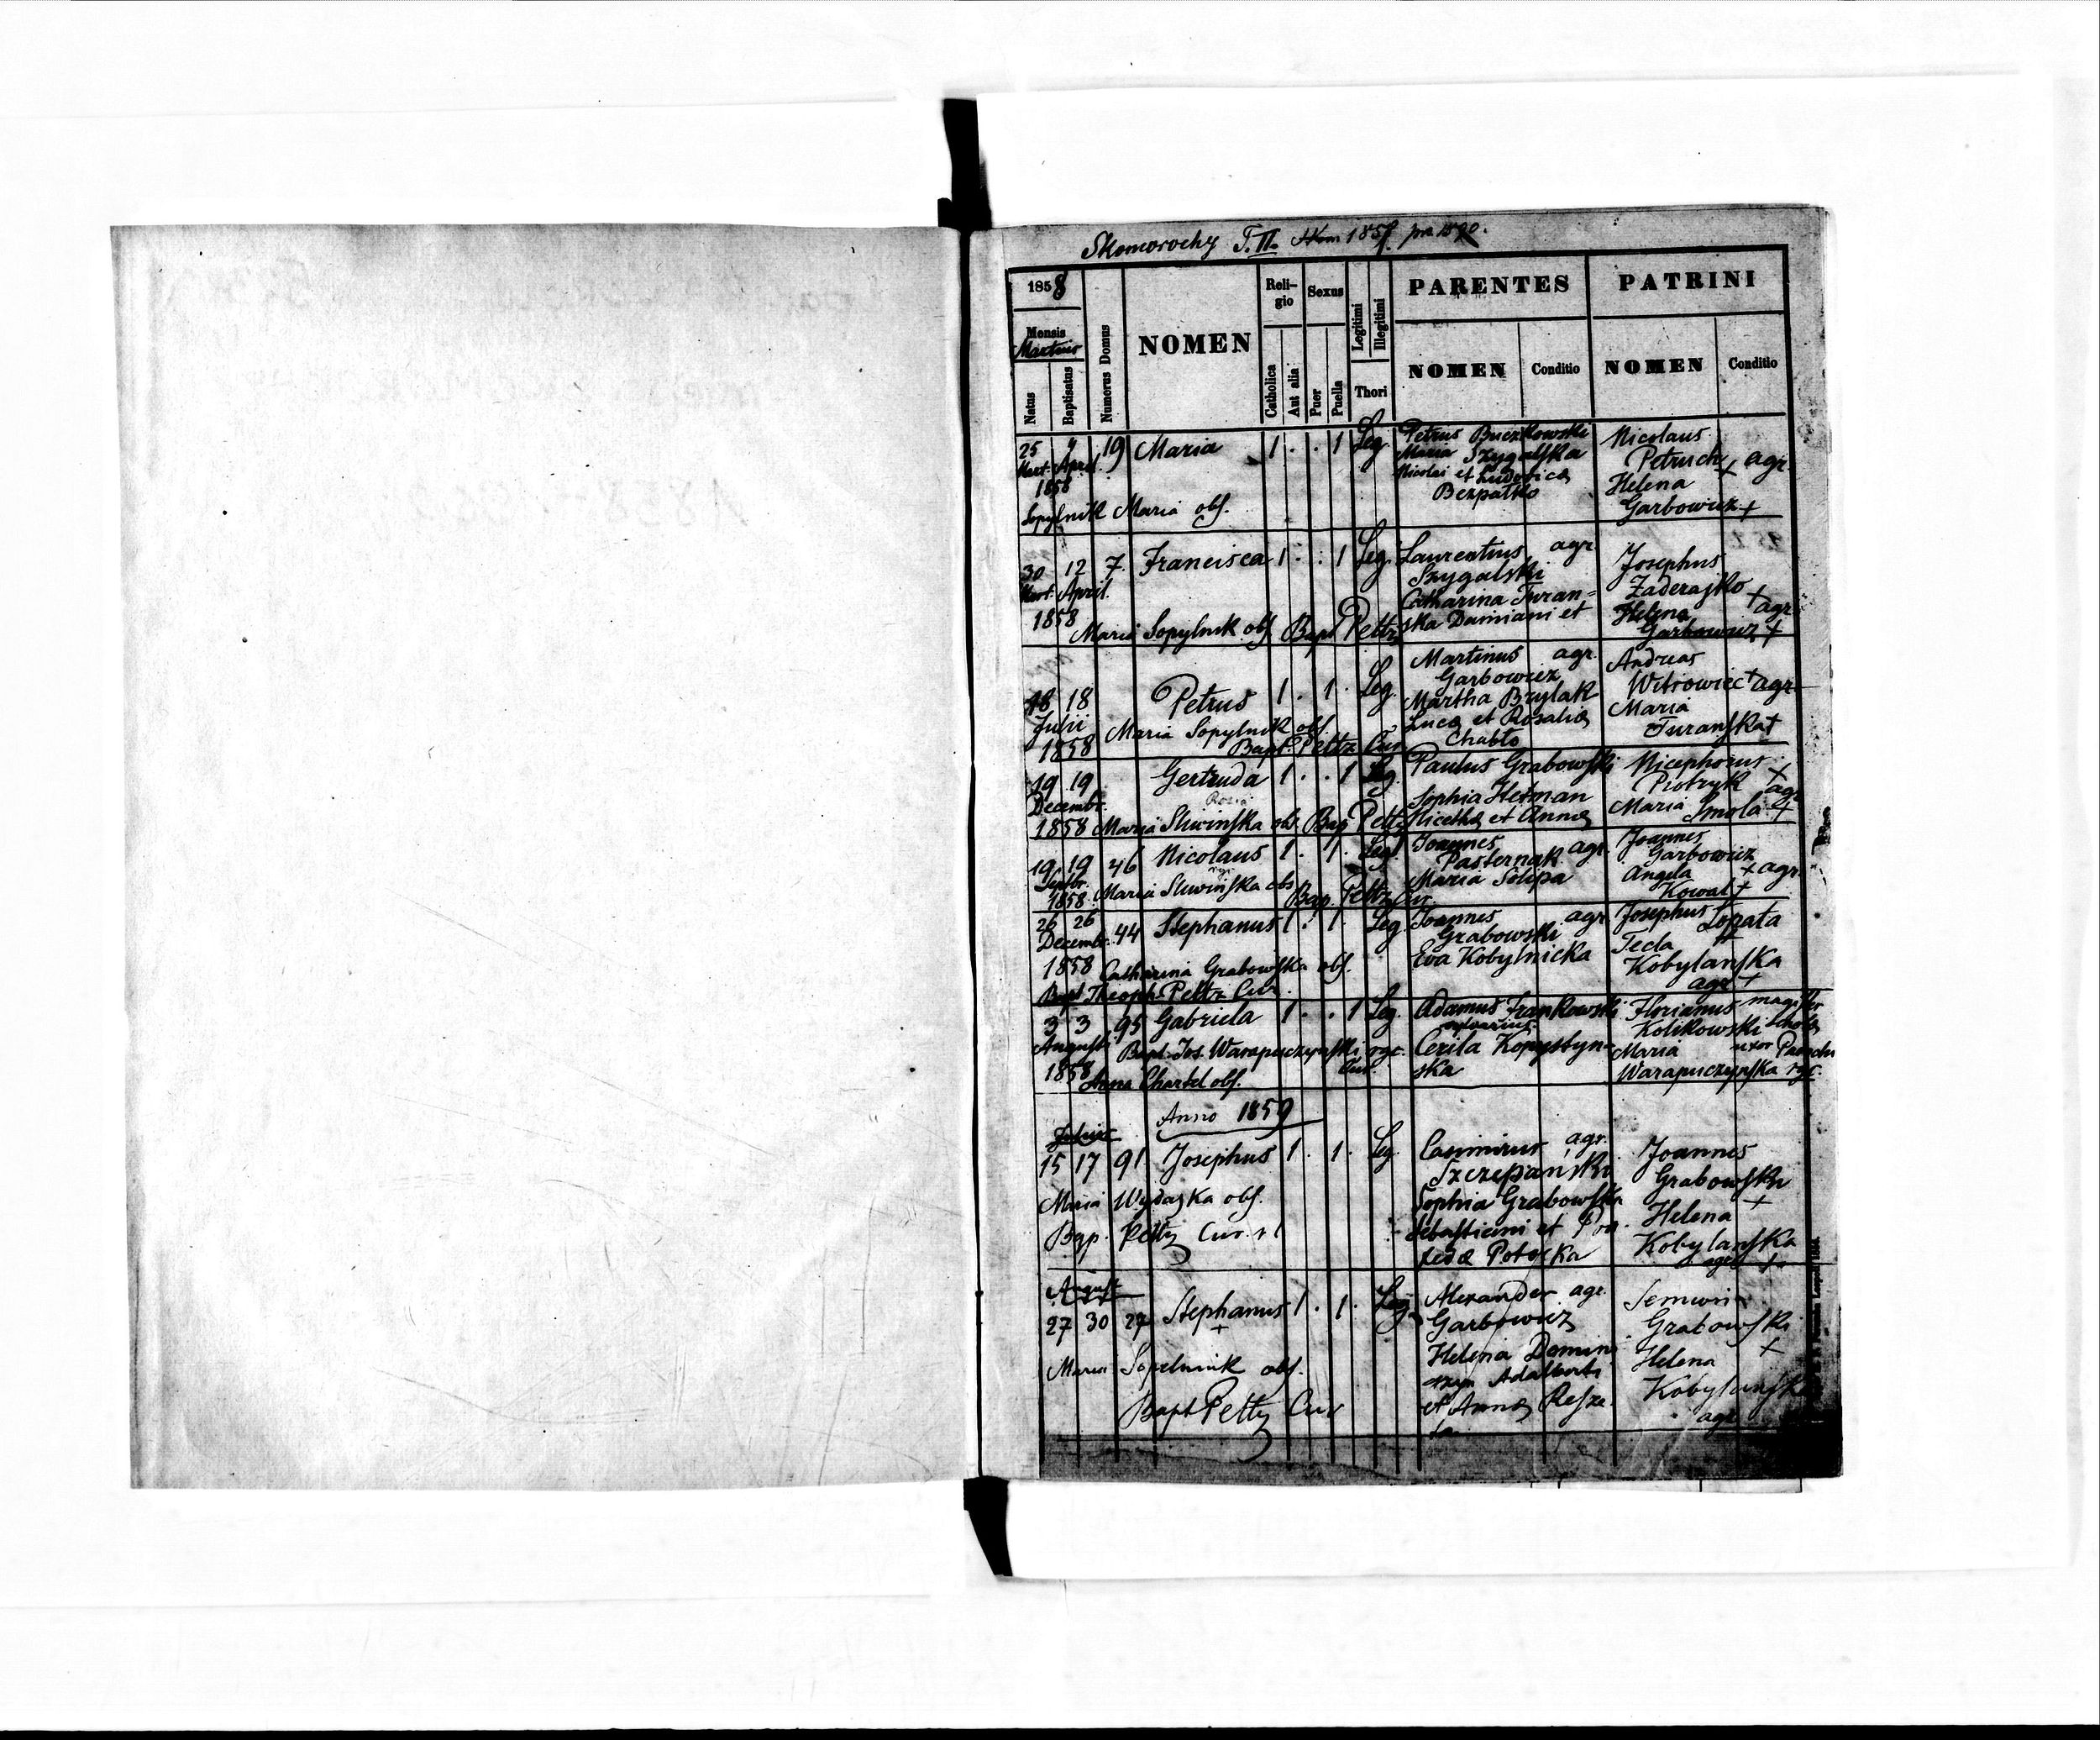 Skomorochy T. II.
1858
Mensis
Martius
Natus
Baptisatus
Numerus Domus
NOMEN
Religio
Catholica
Aut alia
Sexus
Puer
Puella
Legitimi
Illegitimi
Thori
PARENTES
NOMEN
Conditio
PATRINI
NOMEN
Conditio
25 7 19 Maria 1 . . 1 Leg. Petrus Buczkowski Nicolaus
Mart. April. Maria Szygalska Petruch + agr.
1858 Nicolai et Ludovica Helena
Bezpalko Garbowicz +
Sopylnik Maria obs.
30 12 7. Francisca 1 . . 1 Leg. Laurentius agr. Josephus
Mart. April. Szygalski Zaderajko +
1858 Catharina Turan= Helena agr.
Maria Sopylnik obs. Bapt. Peltz ska Damiani et Garbowicz +
18 18 Petrus 1 . 1 . Leg. Martinus agr. Andreas
Julii Garbowicz Witrowiec + agr.
1858 Maria Sopylnik obs. Martha Brylak Maria
Bapt. Peltz Cur. Luca et Rosalia Turanska +
Chablo
19 19 Gertruda 1 . . 1 Leg. Paulus Grabowski Nicephorus +
Decembr. Rozia Sophia Hetman Piotryk agr.
1858 Maria Sliwinska obs. Bap. Peltz Nicetha et Anna Maria Smola +
19 19 46 Nicolaus 1 . 1 . Leg. Joannes agr. Joannes
Septbr. Pasternak Garbowicz
1858 Maria Sliwinska obs Maria Solipa Angela + agr.
Bap. Peltz Cur. Kowal +
26 26 44 Stephanus 1 . 1 . Leg. Joannes agr. Josephus Lopata
Decembr. Grabowski Tecla +
1858 Catharina Grabowska obs. Eva Kobylnicka Kobylanska
Bapt Theoph. Peltz Cur. agr. +
3 3 95 Gabriela 1 . . 1 Leg. Adamus Frankowski Florianus magister
Augusti Kolikowski schola
Bapt. Jos. Warapuczynski rgc. Cecila Kopystyn= Maria uxor Parochi
1858 Anna Chartel obs. Cur. ska Warapuczynska rgc.
Anno 1859
Julius
15 17 91 Josephus 1 . 1 . Leg. Casimirus agr. Joannes
Szczepański Grabowski
Maria Wydaska obs. Sophia Grabowska +
Bap. Peltz Cur. Sebastiani et Helena
Potocka Kobylanska
agr. +
August
27 30 27 Stephanus 1 . 1 . Leg. Alexander agr.
+ Garbowicz Grabowski
Maria Sopelniuk obs. Helena Domin Helena +
Adalberti Kobylanska
Bapt Peltz Cur et Anna agr.